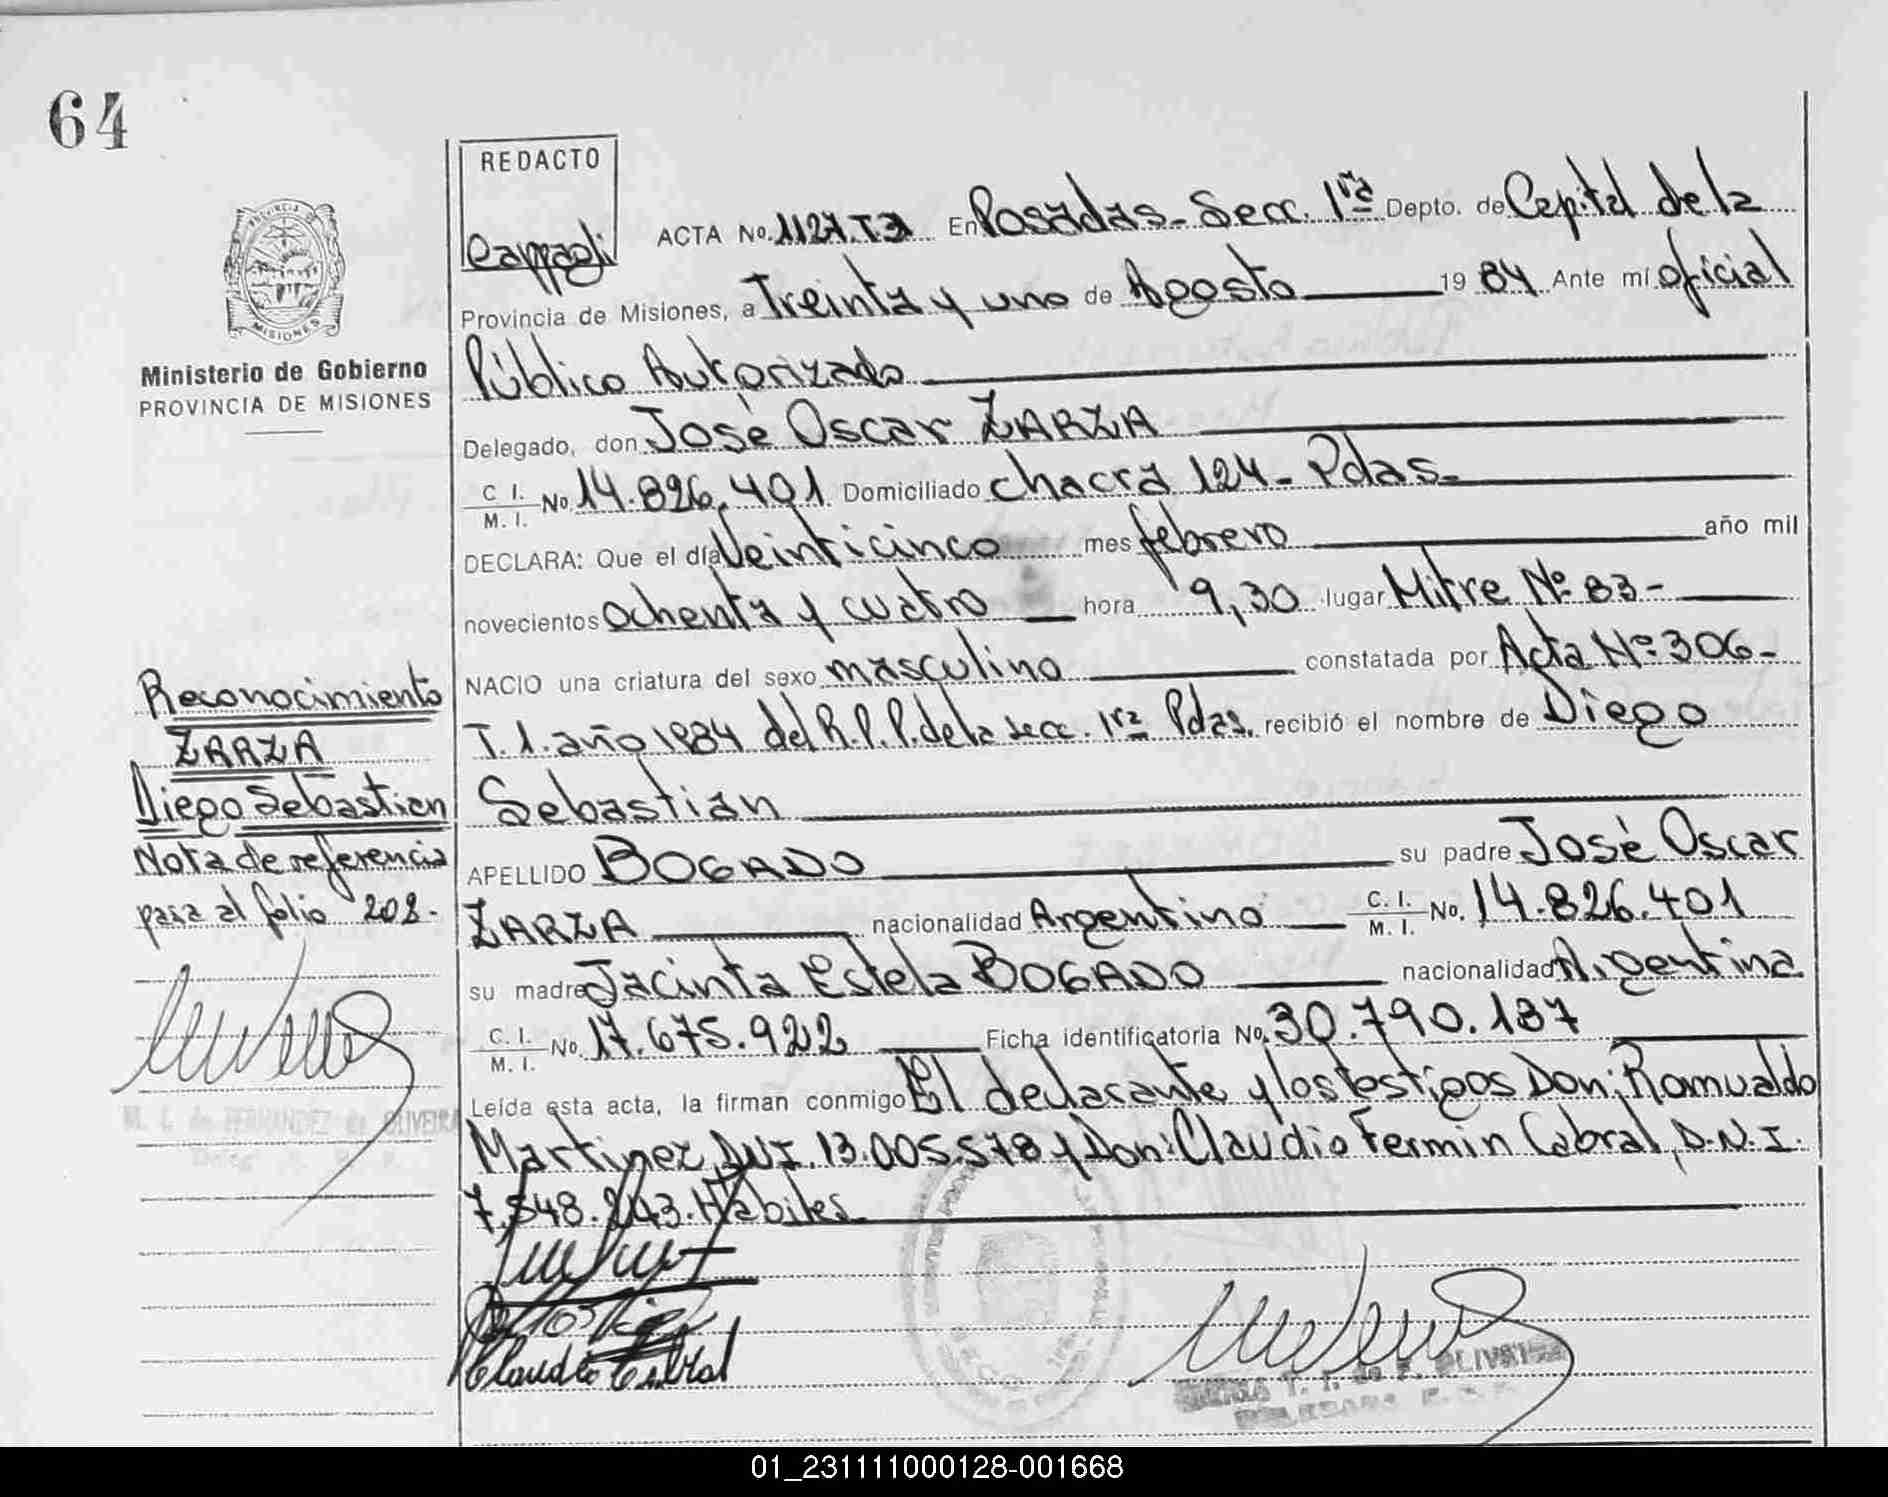 64
REDACTO
Cappagli
ACTA No. 1127. T3 En Posadas - Secc. 1ra Depto. de Capital de la
Provincia de Misiones, a Treinta y uno de Agosto 19 84 Ante mí oficial
Público Autorizado
Delegado, don José Oscar ZARZA
C. I.
M. I. No 14.826.401 Domiciliado chacra 124 - Pdas.
DECLARA: Que el día Veinticinco mes febrero año mil
novecientos ochenta y cuatro hora 9,30 lugar Mitre Nº 83 -
NACIO una criatura del sexo masculino constatada por Acta Nº 306 -
T. 1. año 1984 del R.P.P. de la secc. 1ra Pdas. recibió el nombre de Diego
Sebastián
APELLIDO BOGADO su padre José Oscar
ZARZA nacionalidad Argentino C. I.
M. I. No. 14.826.401
su madre Jacinta Estela BOGADO nacionalidad Argentina
C. I.
M. I. No. 17.675.922 Ficha identificatoria No. 30.790.187
Leída esta acta, la firman conmigo El declarante y los testigos Don: Romualdo
Martinez DNI. 13.005.578 y Don: Claudio Fermin Cabral, D.N.I.
7.548.243. Hábiles
Claudio Cabral
PROVINCIA DE
MISIONES
Ministerio de Gobierno
PROVINCIA DE MISIONES
Reconocimiento
ZARZA
Diego Sebastian
Nota de referencia
pasa al folio 208 -
M. I. de FERNANDEZ de OLIVEIRA
01_231111000128-001668